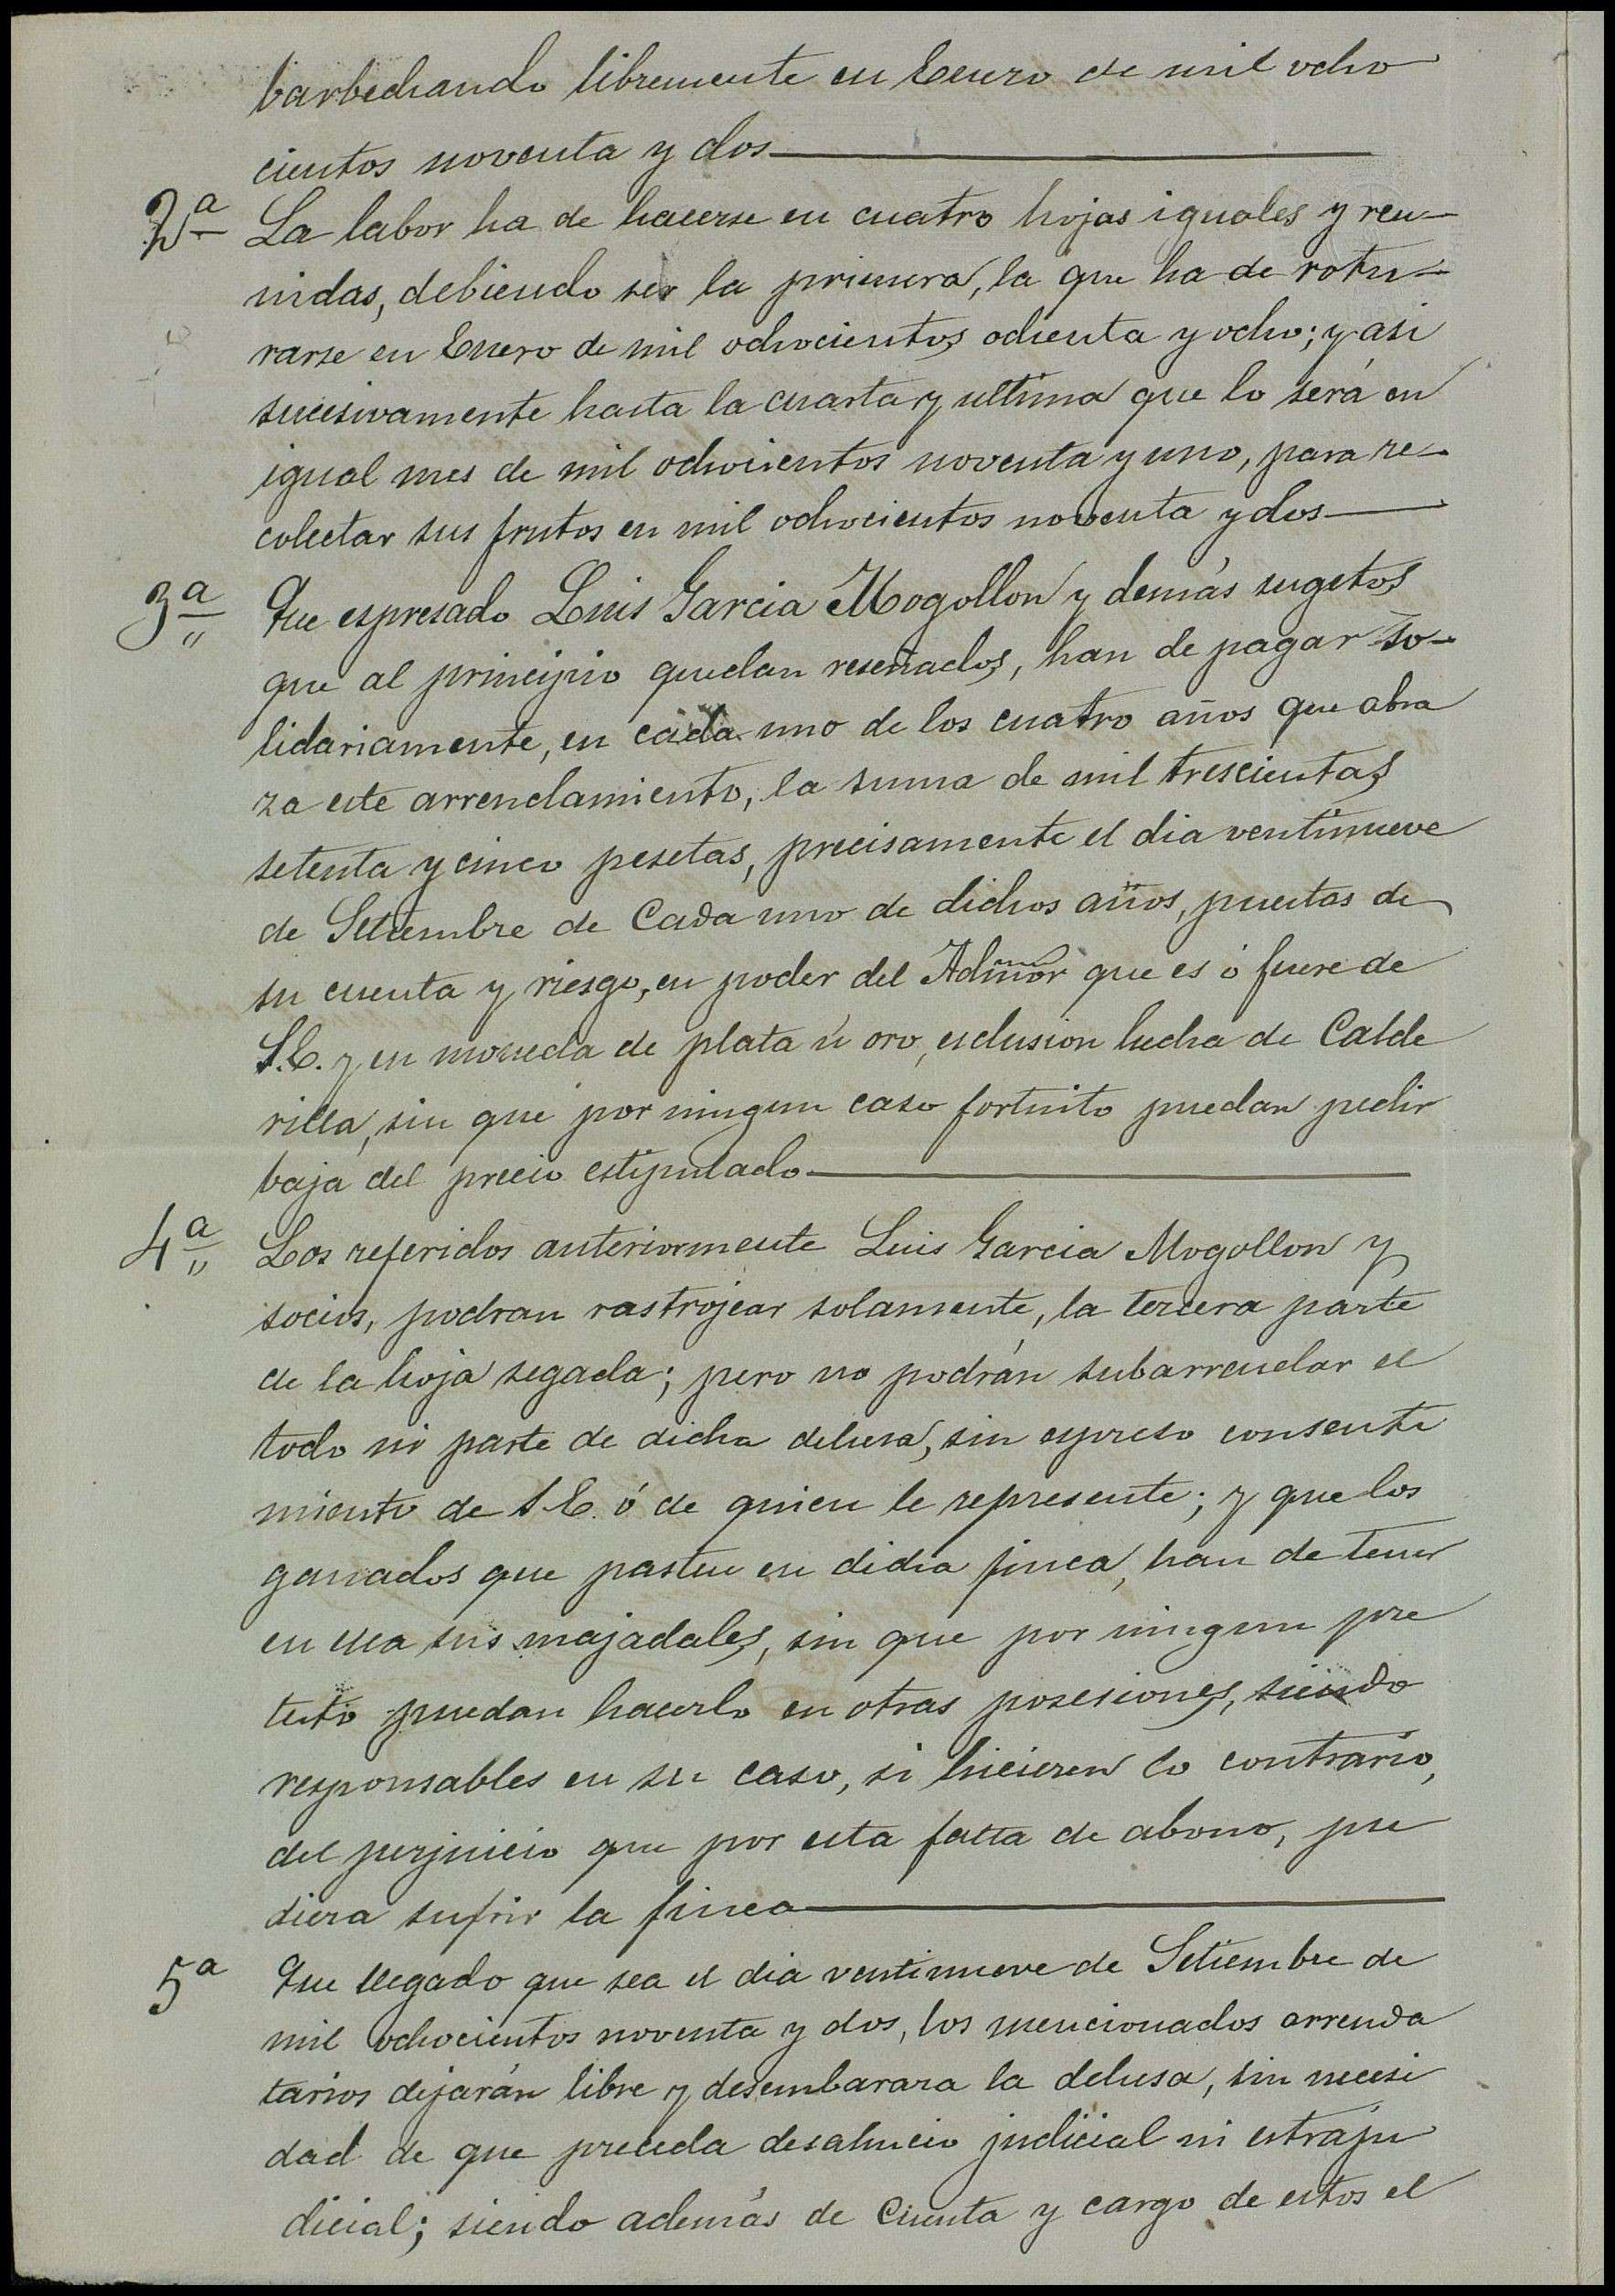 barbechando libremente en Enero de mil ocho
cientos noventa y dos
2ª La labor ha de hacerse en cuatro hojas iguales y reu-
nidas, debiendo ser la primera, la que ha de rotu-
rarse en Enero de mil ochocientos ochenta y ocho; y asi
sucesivamente hasta la cuarta y ultima que lo será en
igual mes de mil ochocientos noventa y uno, para re-
colectar sus frutos en mil ochocientos noventa y dos
3ª Que espresado Luis Garcia Mogollon y demás sugetos
que al principio quedan reseñados, han de pagar so-
lidariamente, en cada uno de los cuatro años que abra
za este arrendamiento, la suma de mil trescientas
setenta y cinco pesetas, precisamente el dia ventinueve
de Setiembre de Cada uno de dichos años, puestas de
su cuenta y riesgo, en poder del Admor que es ó fuere de
S.E. y en moneda de plata ú oro, esclusion hecha de Calde
rilla, sin que por ningun caso fortuito puedan pedir
baja del precio estipulado
4ª Los referidos anteriormente Luis Garcia Mogollon y
socios, podran rastrojear solamente, la tercera parte
de la hoja segada; pero no podrán subarrendar el
todo ni parte de dicha dehesa, sin espreso consenti
miento de S.E. ó de quien le represente; y que los
ganados que pasten en dicha finca, han de tener
en ella sus majadales, sin que por ningun pre
testo puedan hacerlo en otras posesiones, siendo
responsables en su caso, si hicieren lo contrario,
del perjuicio que por esta falta de abono, pu
diera sufrir la finca
5ª Que llegado que sea el dia ventinueve de Setiembre de
mil ochocientos noventa y dos, los mencionados arrenda
tarios dejarán libre y desembaraza la dehesa, sin necesi
dad de que preceda desahucio judicial ni estraju
dicial; siendo además de Cuenta y cargo de estos el